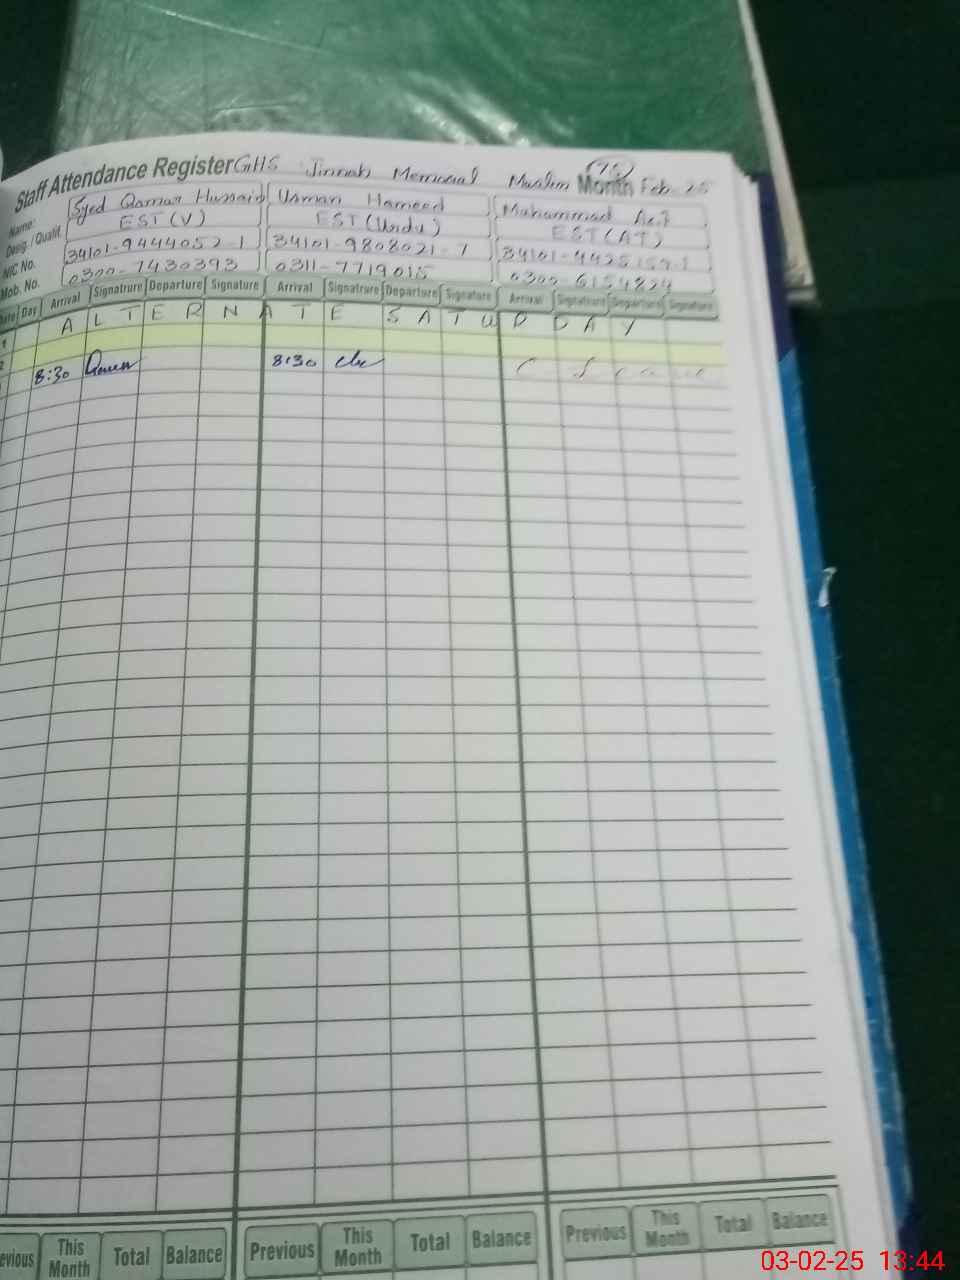 Staff Attendance Register GHS Jinnah Memorial Muslim Month Feb-25
Name: Syed Qamar Hussain Usman Hameed Muhammad
Desig. / Qualif. EST(V) EST(Urdu) EST(AT)
NIC No. 34101-9444052-1 34101-9808021-7
Mob. No. 0300-7430393 0311-7719015 0300-6154824
Date Day Arrival Signatrure Departure Signature Arrival Signatrure Departure Signature Arrival Signatrure Departure Signature
1 A L T E R N A T E S A T U R D A Y
2
8:30 8:30
Previous This Month Total Balance Previous This Month Total Balance Previous This Month Total Balance
03-02-25 13:44